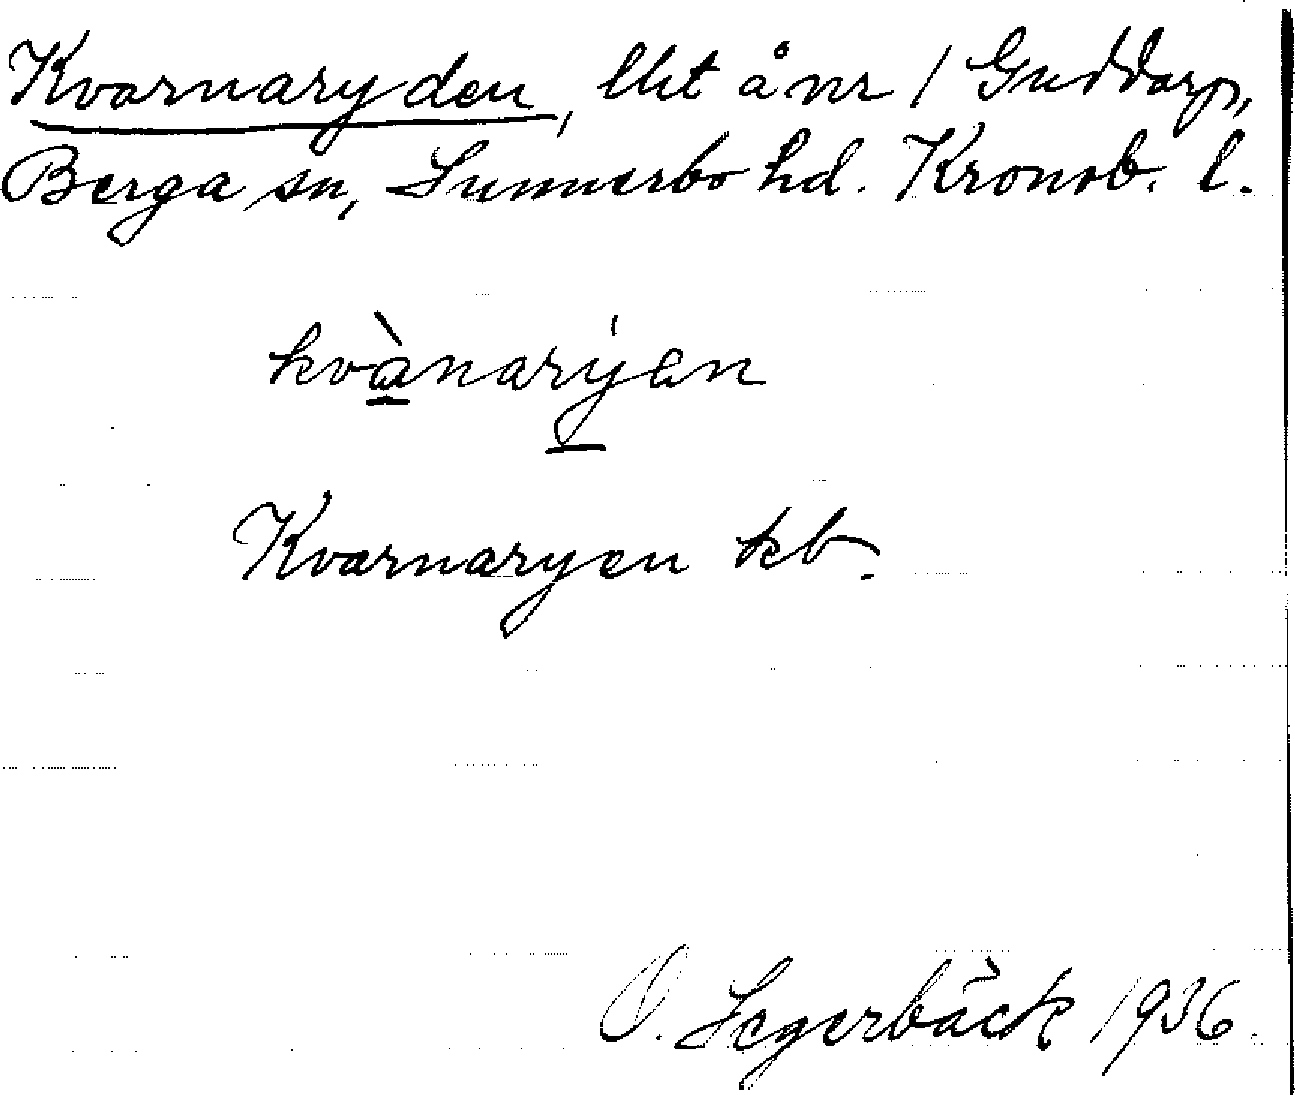 Kvarnaryden, lht å nr 1 Guddarp,
Berga sn, Sunnerbo hd. Kronob. l.
kvànarýen
Kvarnaryen kb.
O. Segerbäck 1936.